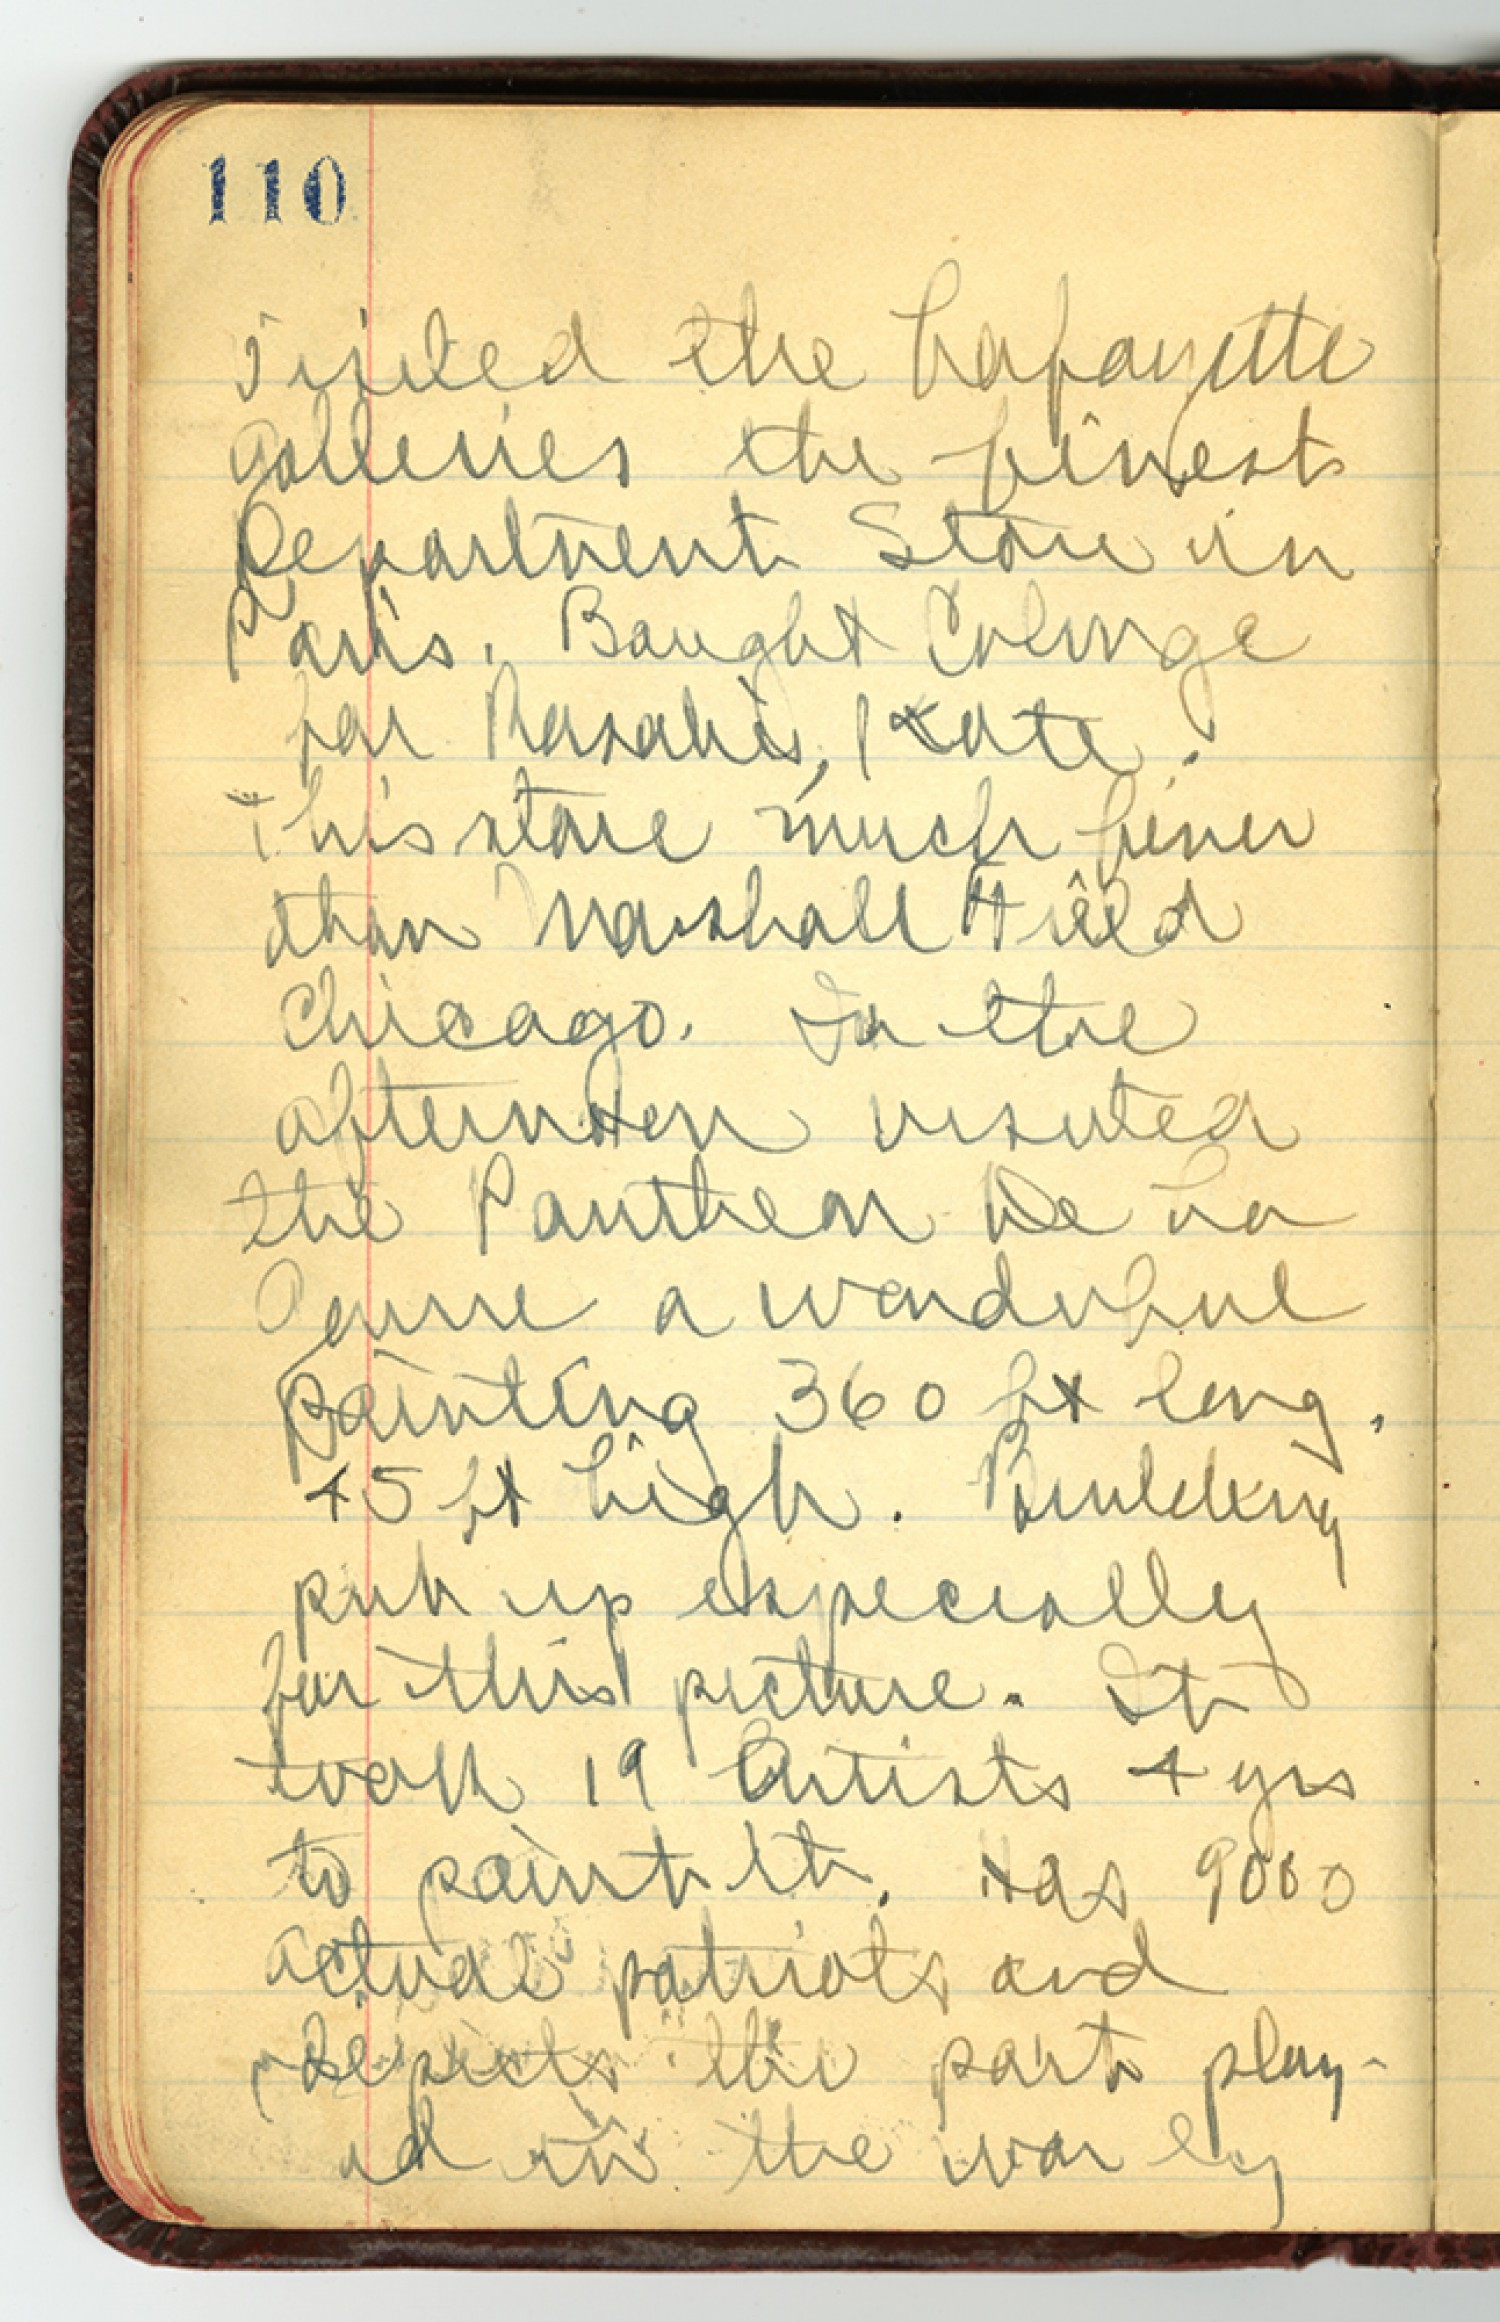 110
Visited the Lafayette
Galleries the finest
Department Store in
Paris. Bought Cologne
for Rosalies, Kate.
This store much finer
than Marshall Field
Chicago. In the
afternoon visited
the Pantheon De La
Guerre a wonderful
painting 360 ft long,
45 ft high. Building
put up especially
for this picture. It
took 19 Artists 4 yrs
to paint it. Has 9000
actual patriots and
depicts the part play-
ed in the war by